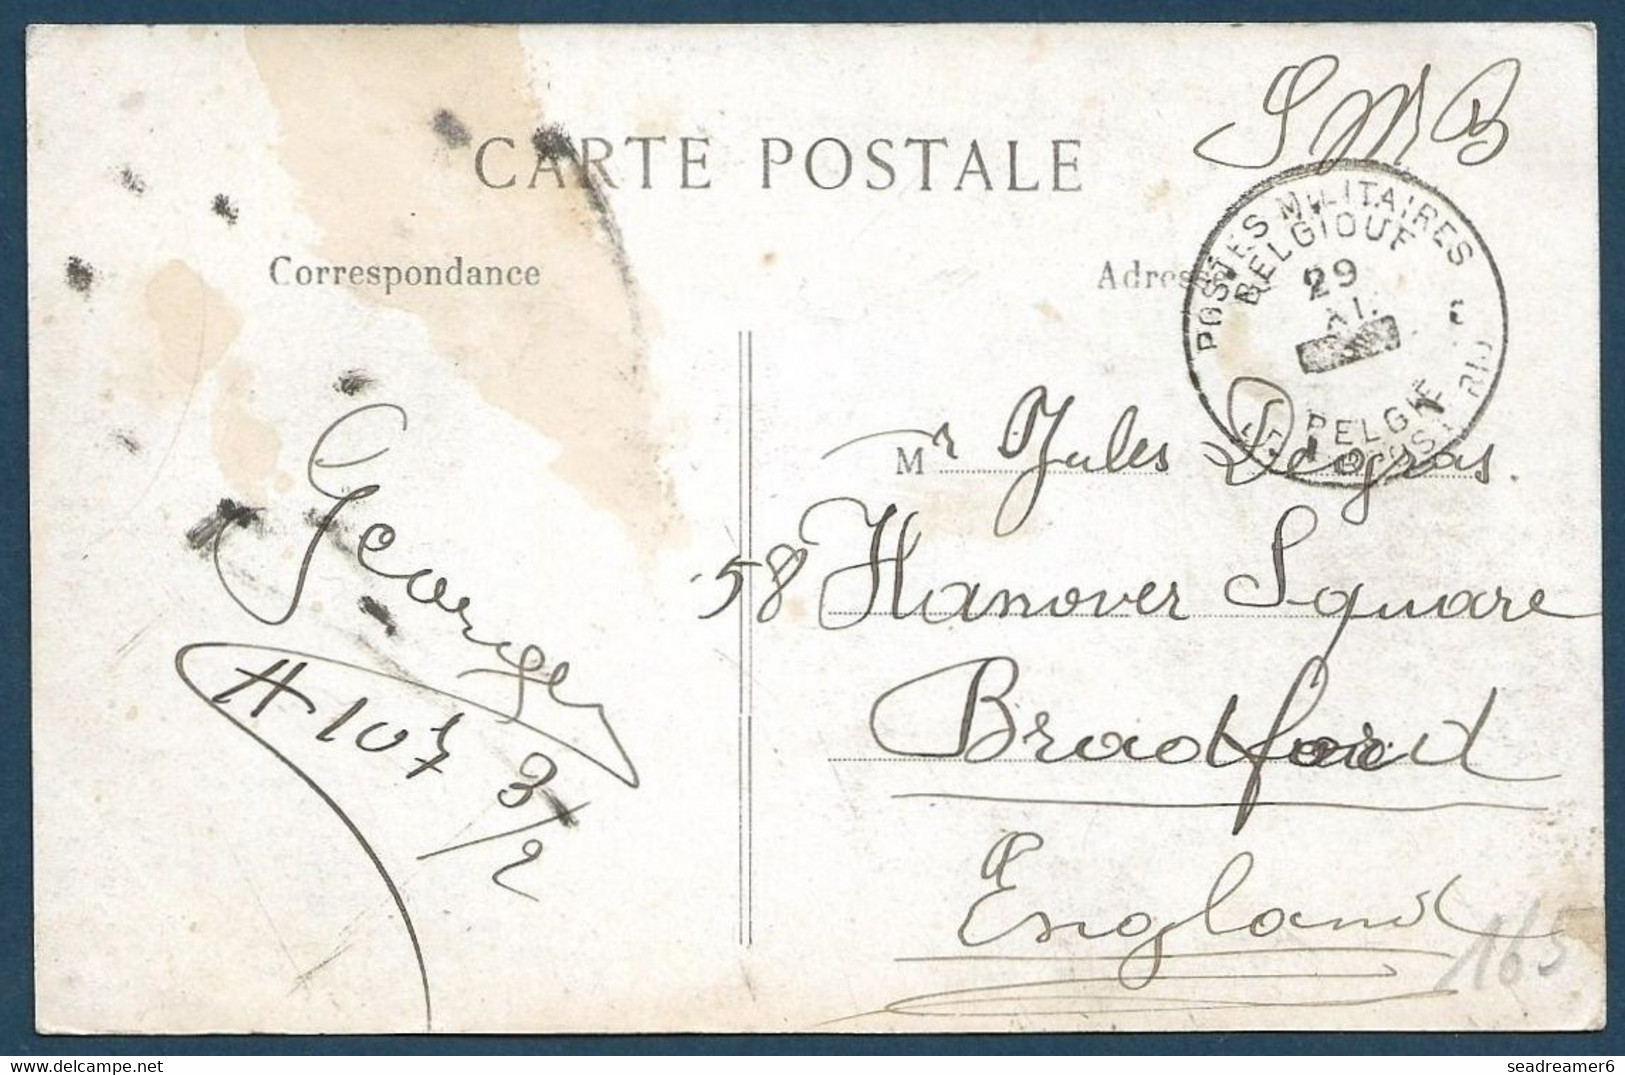 S M B
CARTE POSTALE
Correspondance
Adresse
POSTES MILITAIRES
BELGIQUE
29
BELGIE
Mr Jules Degras
58 Hanover Square
Bradford
England
Georges
A 107 3/2
165
seadreamer6
delcampe.net